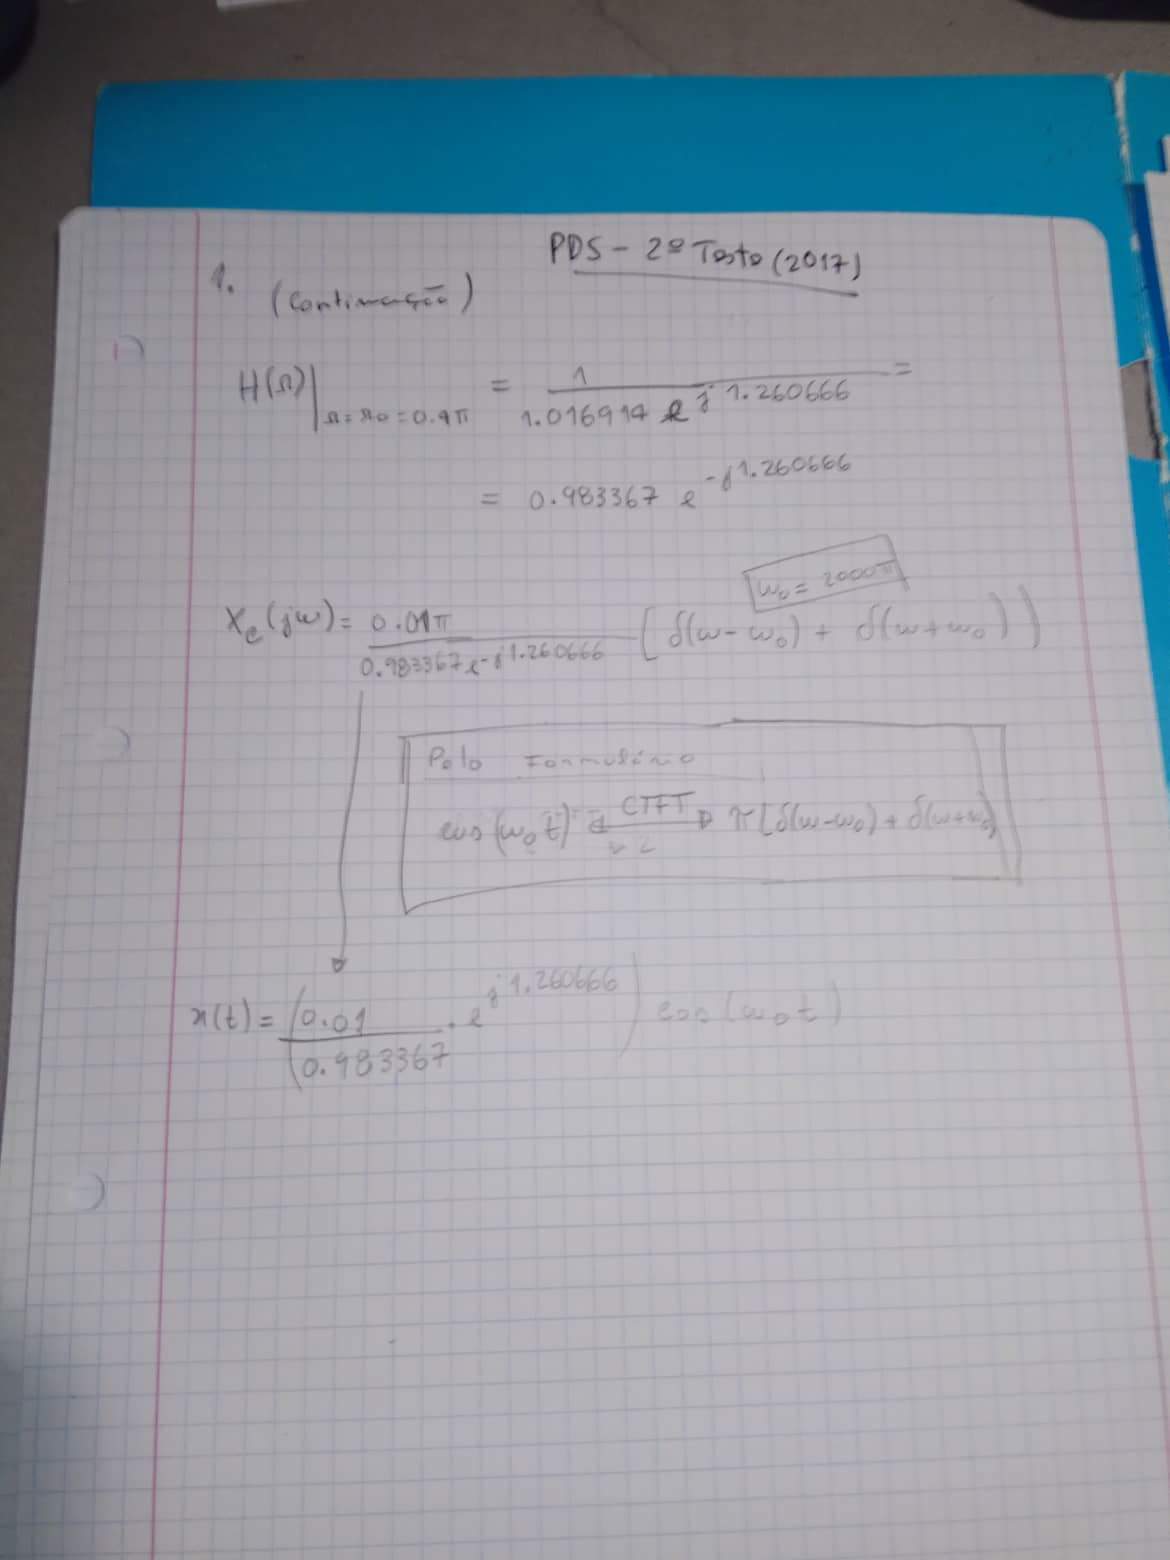 PDS - 2º Teste (2017)
1. (Continuação)
H(Ω)|Ω=Ω0=0.4π = 1 / 1.016914 e^{j 1.260666} =
= 0.983367 e^{-j1.260666}
ω0 = 2000π
Xc(jω) = 0.01π / 0.983367 e^{-j1.260666} [δ(ω-ω0) + δ(ω+ω0)]
Pelo Formulário
cos(ω0t) ←CTFT→ π[δ(ω-ω0) + δ(ω+ω0)
x(t) = (0.01 / 0.983367 . e^{j1.260666}) cos(ω0t)